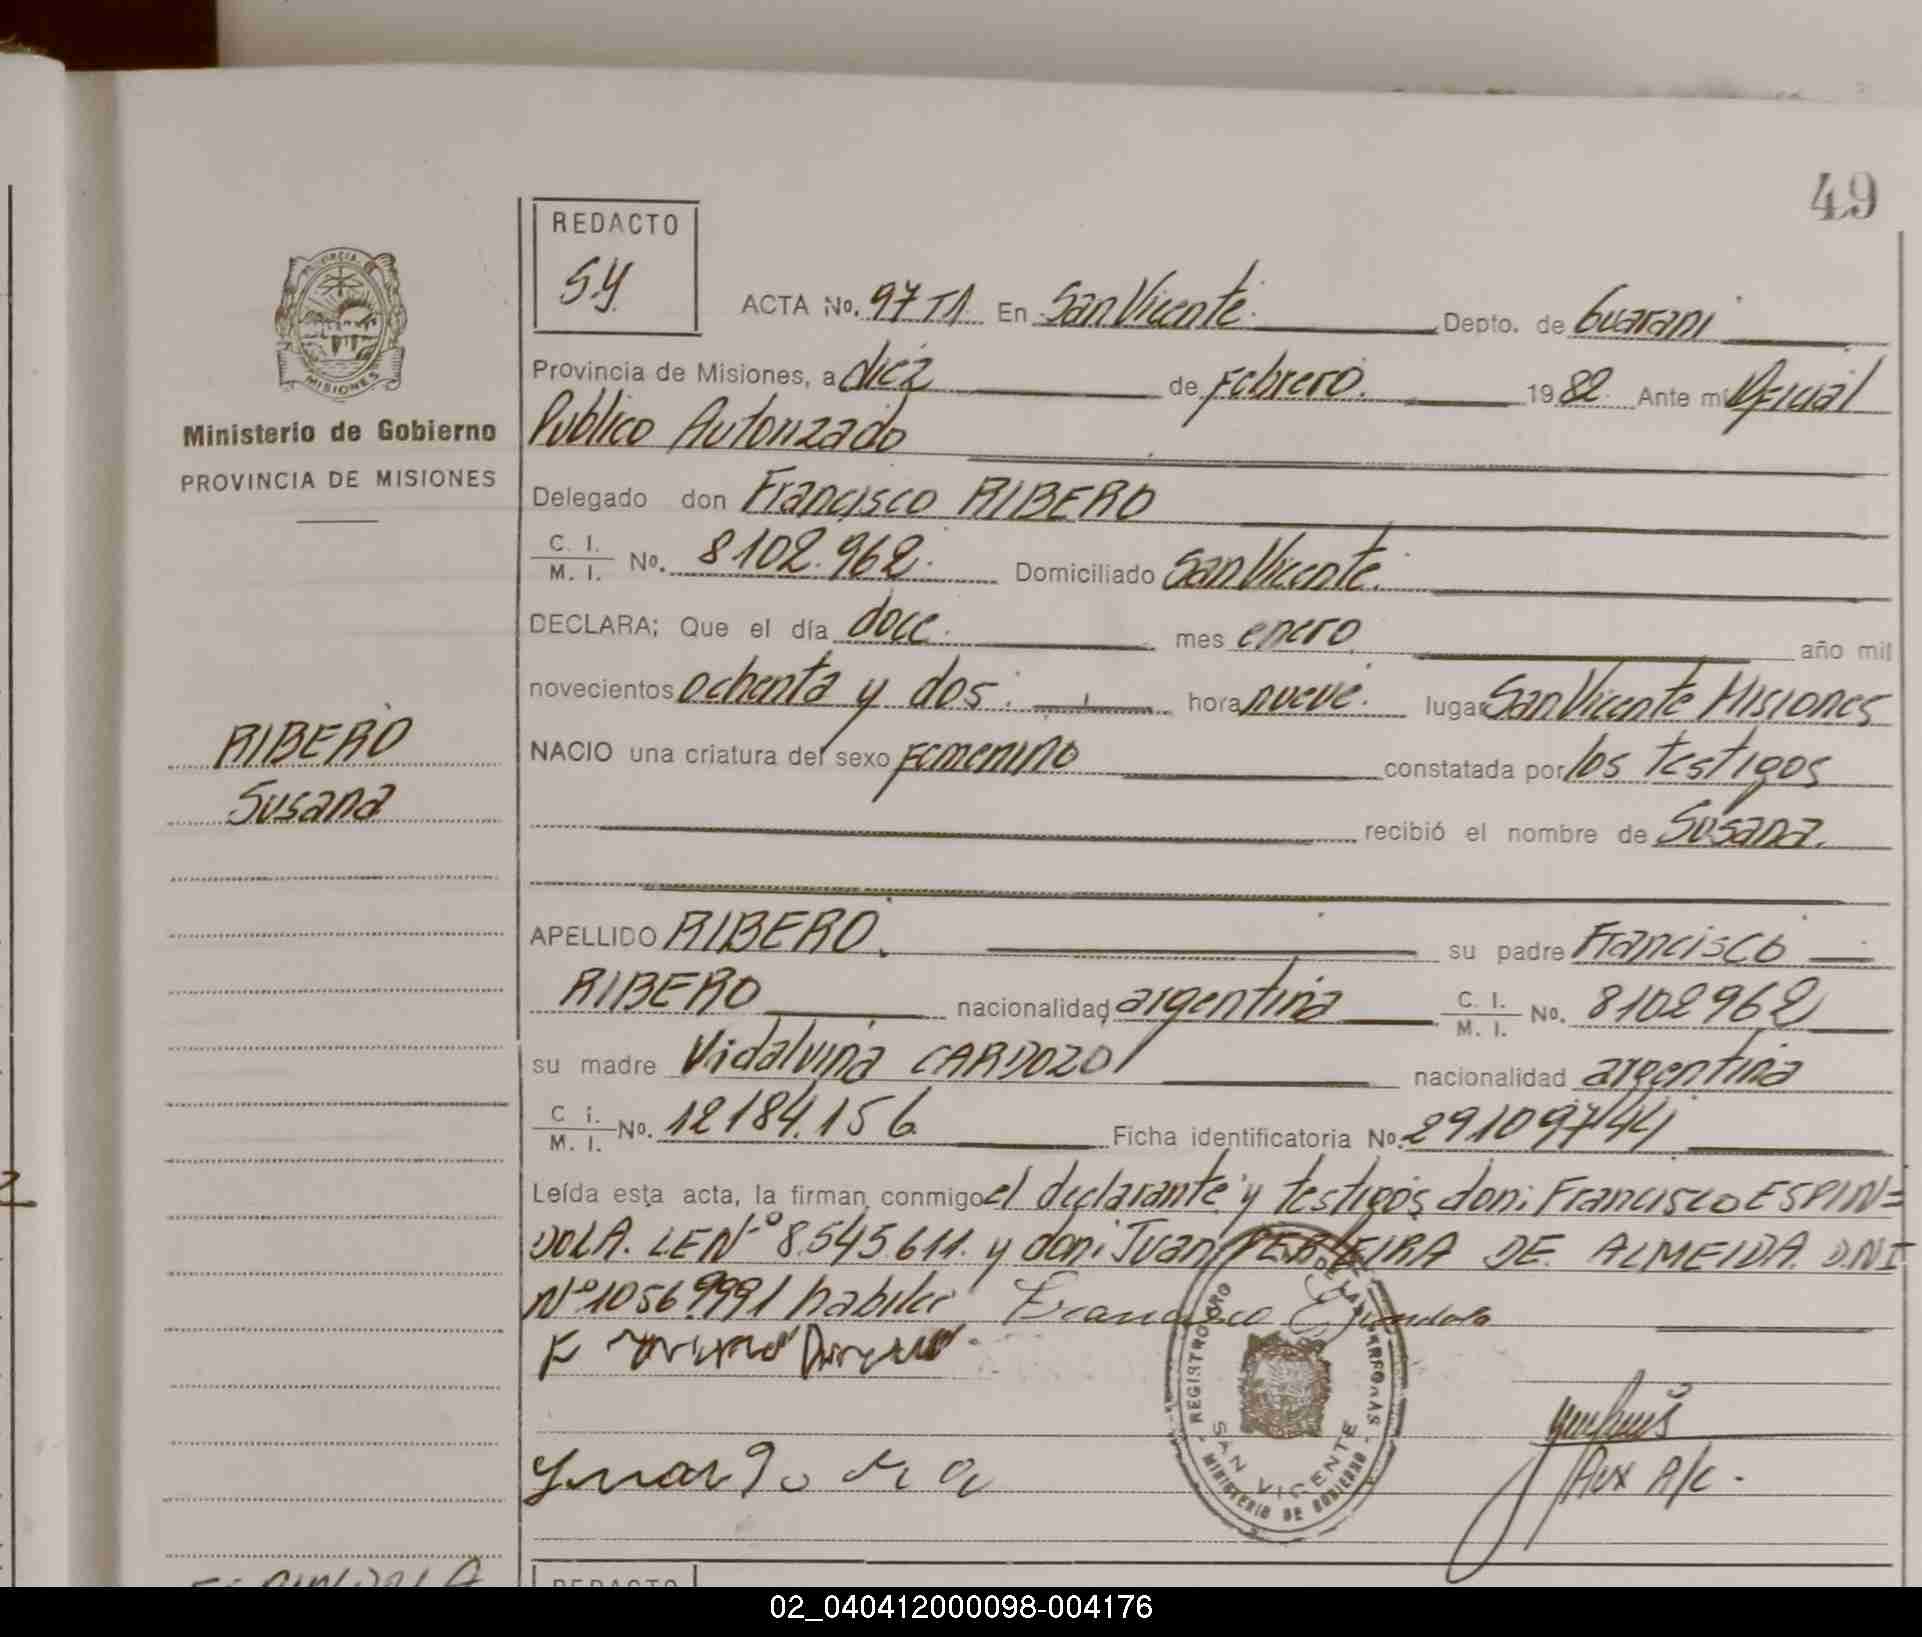 49
REDACTO
SY.
ACTA No. 97 T1. En San Vicente. Depto. de Guarani
Provincia de Misiones, a diez de Febrero. 1982. Ante mi Oficial
Publico Autorizado
Delegado don Francisco RIBERO
C. I. / M. I. No. 8102.962. Domiciliado San Vicente.
DECLARA; Que el día doce. mes enero. año mil
novecientos ochenta y dos. hora nueve. lugar San Vicente Misiones
NACIO una criatura del sexo Femenino constatada por los testigos
recibió el nombre de Susana.
APELLIDO RIBERO. su padre Francisco
RIBERO nacionalidad argentina C. I. / M. I. No. 8102962
su madre Vidalvina CARDOZO nacionalidad argentina
C i. / M. I. No. 12184.156 Ficha identificatoria No. 291097/44
Leída esta acta, la firman conmigo el declarante y testigos don: Francisco ESPIN=
DOLA. LE Nº 8.545.611. y don: Juan PEREIRA DE ALMEIDA. D.N.I
Nº 10569991 habiles Francisco Espindola
Aux A/C.
PROVINCIA DE
MISIONES
Ministerio de Gobierno
PROVINCIA DE MISIONES
RIBERO
Susana
REGISTRO DE LAS PERSONAS
SAN VICENTE
MINISTERIO DE GOBIERNO
REDACTO
02_040412000098-004176